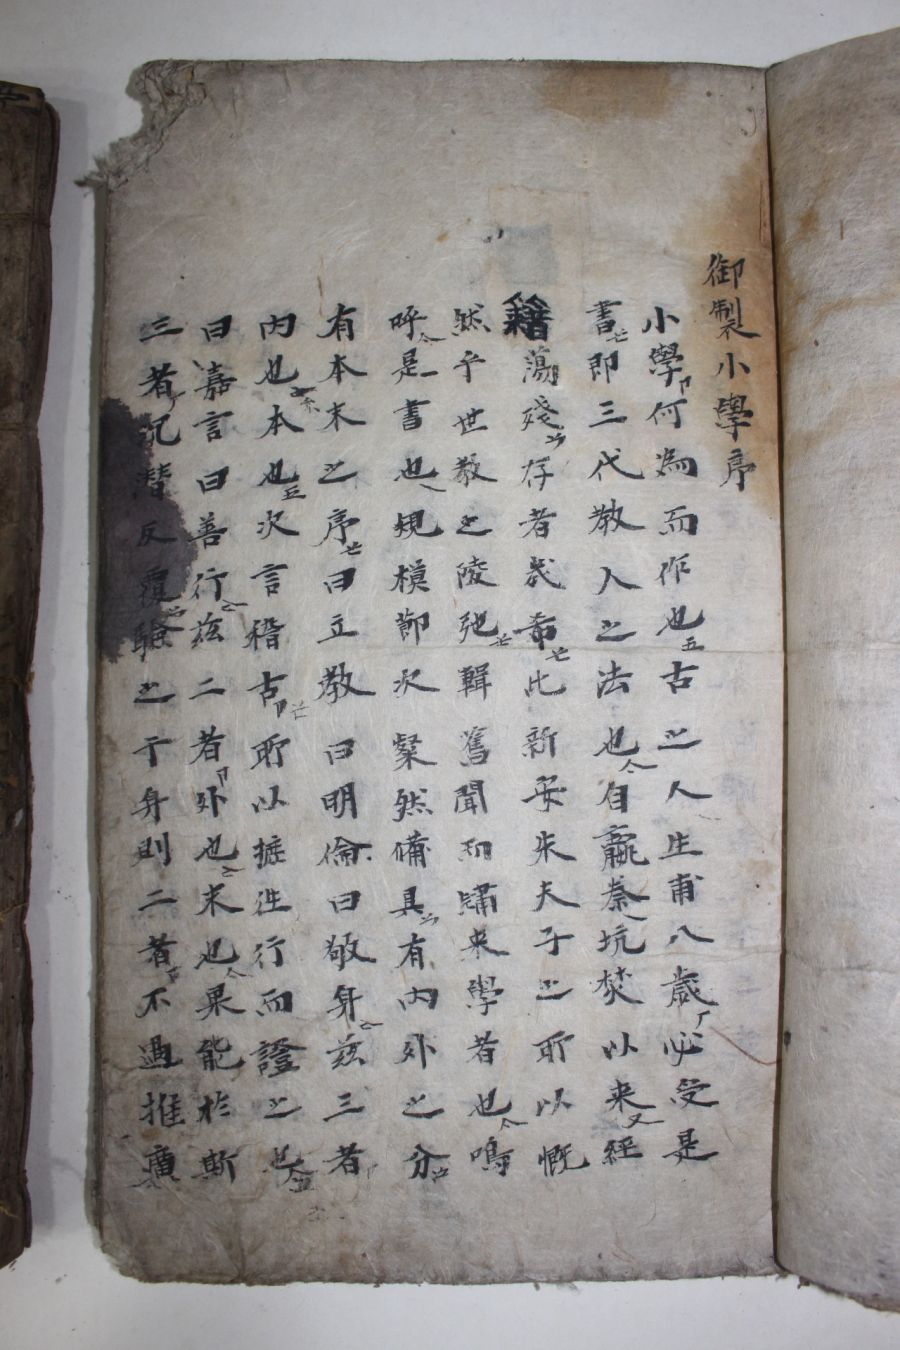 御製小學序
小學何為而作也古之人生甫八歲必受是
書即三代敎人之法也自嬴秦坑焚以来經
籍蕩殘存者幾希此新安朱夫子之所以慨
然乎世敎之陵弛輯舊聞而牖來學者也嗚
呼是書也規模節次粲然備具有內外之分
有本末之序曰立敎曰明倫曰敬身玆三者
內也本也次言稽古所以摭往行而證之也
曰嘉言曰善行玆二者外也末也果能於斯
三者沉潛反覆驗之于身則二者不過推廣